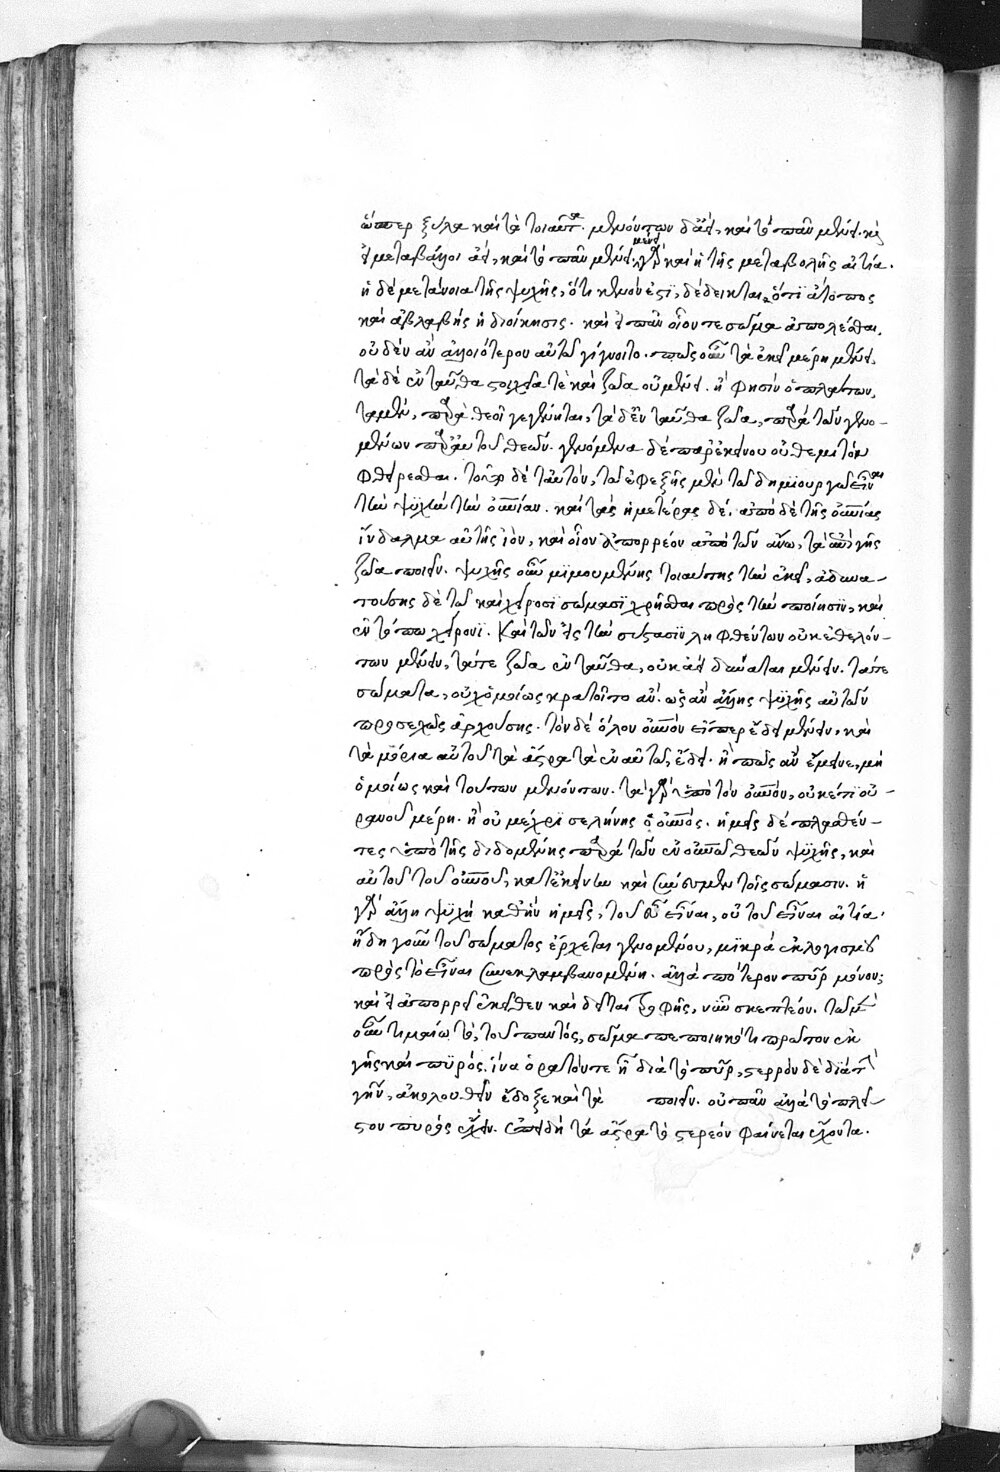 ὥσπερ ξύλα καὶ τὰ τοιαῦτα. μενόντων δ' ἀεὶ, καὶ τὸ πᾶν μένει. καὶ
εἰ μεταβάλλοι ἀεὶ, καὶ τὸ πᾶν μένει· μένει γὰρ καὶ ἡ τῆς μεταβολῆς αἰτία.
ἡ δὲ μετάνοια τῆς ψυχῆς, ὅτι κενόν ἐστι, δέδεικται, ὅτι ἄτοπος
καὶ ἀβλαβὴς ἡ διοίκησις. καὶ εἰ πᾶν οἷόν τε σῶμα ἀπολέσθαι,
οὐδὲν ἂν ἀλλοιότερον αὐτῷ γίγνοιτο. πῶς οὖν τὰ ἐκεῖ μέρη μένει,
τὰ δὲ ἐνταῦθα στοιχεῖά τε καὶ ζῶα οὐ μένει. ἢ φησὶν ὁ πλάτων,
τὰ μὲν, παρὰ θεοῦ γεγένηται, τὰ δ' ἐνταῦθα ζῶα, παρὰ τῶν γενο-
μένων παρ' αὐτοῦ θεῶν. γενόμενα δὲ παρ' ἐκείνου οὐ θεμιτὸν
φθείρεσθαι. τοῦτο δὲ ταὐτὸν, τῷ ἐφεξῆς μὲν τῷ δημιουργῷ εἶναι
τὴν ψυχὴν τὴν οὐρανίαν. καὶ τὰς ἡμετέρας δέ. ἀπὸ δὲ τῆς οὐρανίας
ἴνδαλμα αὐτῆς ἰὸν, καὶ οἷον ἀπορρέον ἀπὸ τῶν ἄνω, τὰ ἐπὶ γῆς
ζῶα ποιεῖν. ψυχῆς οὖν μιμουμένης τοιαύτης τὴν ἐκεῖ, ἀδυνα-
τούσης δὲ τῷ καὶ χείροσι σώμασι χρῆσθαι πρὸς τὴν ποίησιν, καὶ
ἐν τόπῳ χείρονι. καὶ τῶν εἰς τὴν σύστασιν ληφθέντων οὐκ ἐθελόν-
των μένειν, τά τε ζῶα ἐνταῦθα, οὐκ ἀεὶ δύναται μένειν. τά τε
σώματα, οὐχ ὁμοίως κρατοῖτο ἄν. ὡς ἂν ἄλλης ψυχῆς αὐτῶν
προσεχῶς ἀρχούσης. τὸν δὲ ὅλον οὐρανὸν εἴπερ ἔδει μένειν, καὶ
τὰ μόρια αὐτοῦ τὰ ἄστρα τὰ ἐν αὐτῷ, ἔδει. ἢ πῶς ἂν ἔμεινε, μὴ
ὁμοίως καὶ τούτων μενόντων. τὰ γὰρ ὑπὸ τὸν οὐρανὸν, οὐκέτι οὐ-
ρανοῦ μέρη. ἢ οὐ μέχρι σελήνης ὁ οὐρανός. ἡμεῖς δὲ πλασθέν-
τες ὑπὸ τῆς διδομένης παρὰ τῶν ἐν οὐρανῷ θεῶν ψυχῆς, καὶ
αὐτοῦ τοῦ οὐρανοῦ, κατ' ἐκείνην καὶ σύνεσμεν τοῖς σώμασιν. ἡ
γὰρ ἄλλη ψυχὴ καθ' ἣν ἡμεῖς, τοῦ εὖ εἶναι, οὐ τοῦ εἶναι αἰτία.
ἤδη γοῦν τοῦ σώματος ἔρχεται γενομένου, μικρὰ ἐκ λογισμοῦ
πρὸς τὸ εἶναι συνεκλαμβανομένη. ἀλλὰ πότερον πῦρ μόνον;
καὶ εἰ ἀπορρεῖ ἐκεῖθεν καὶ δεῖται τροφῆς, νῦν σκεπτέον. τῷ μὲν
οὖν τιμαίῳ τὸ, τοῦ παντὸς, σῶμα πεποιηκότι πρῶτον ἐκ
γῆς καὶ πυρός. ἵνα ὁρατόν τε ᾖ διὰ τὸ πῦρ, στερρὸν δὲ διὰ τὴν
γῆν, ἀκολουθεῖν ἔδοξε καὶ τὰ ποιεῖν. οὐ πᾶν ἀλλὰ τὸ πλεῖ-
στον πυρὸς ἔχειν. ἐπειδὴ τὰ ἄστρα τὸ στερεὸν φαίνεται ἔχοντα.